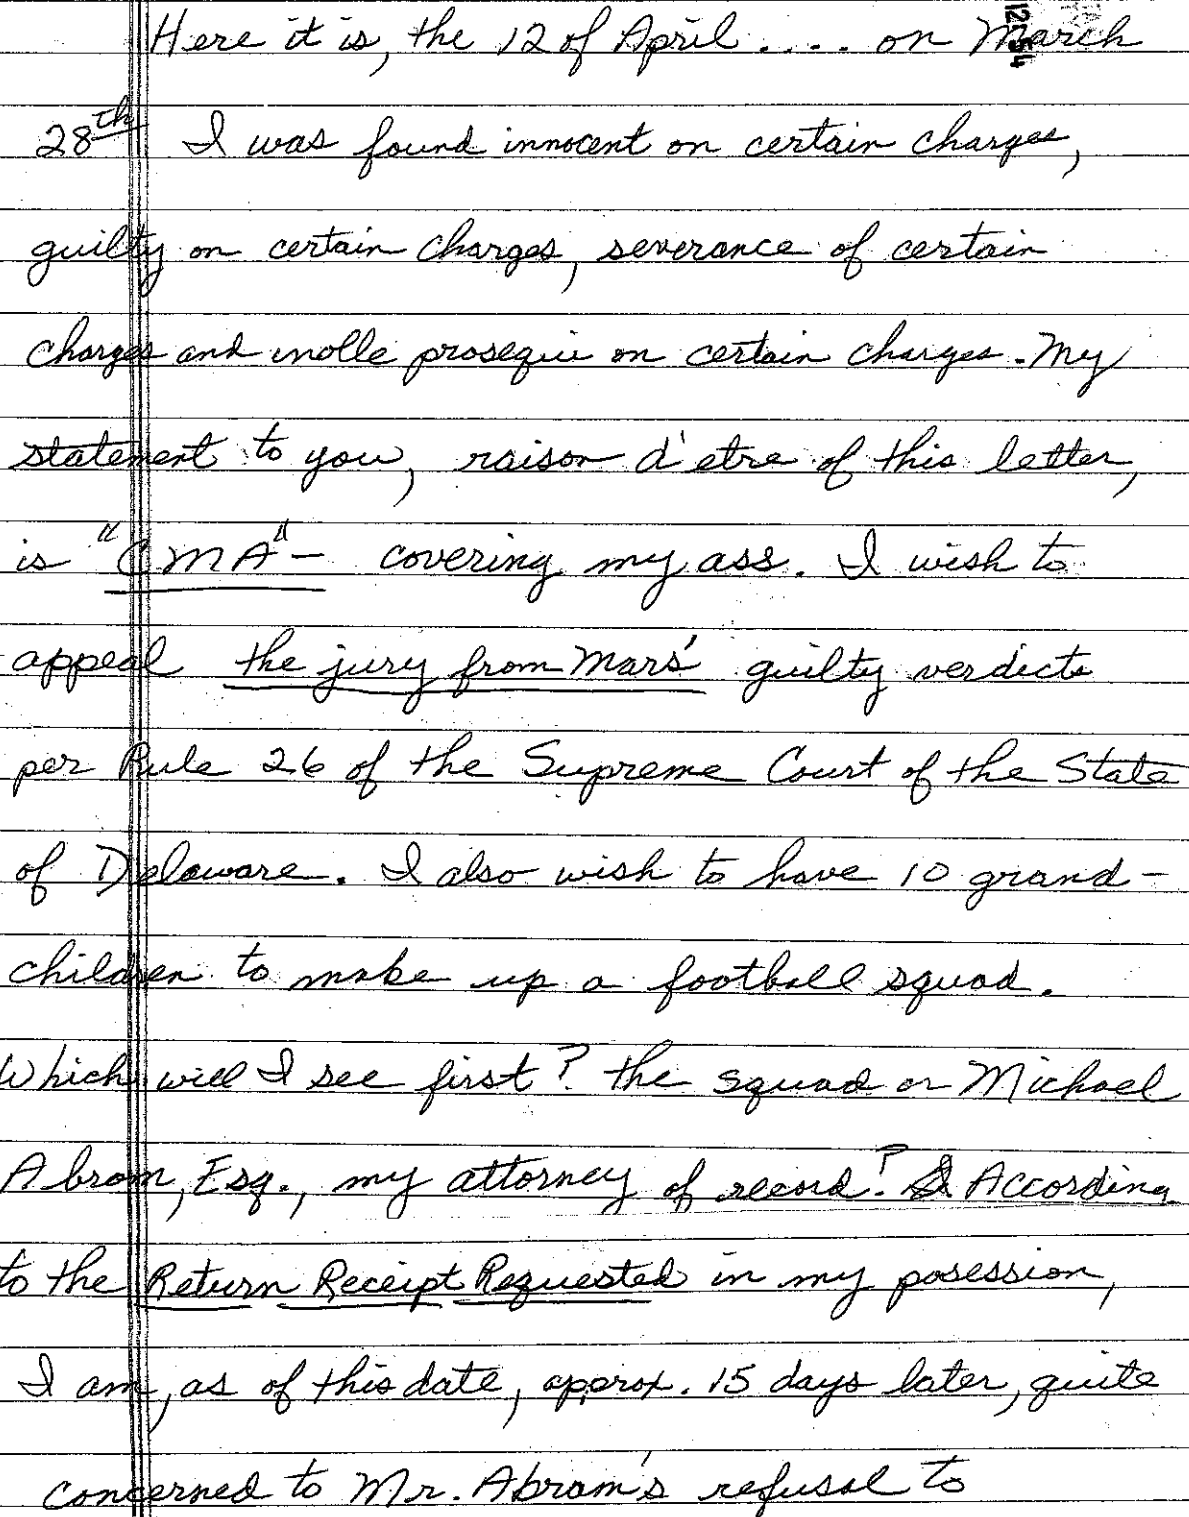 Here it is, the 12 of April .... on March
28th I was found innocent on certain charges,
guilty on certain charges, severance of certain
charges and nolle prosequi on certain charges. My
statement to you, raison d'etre of this letter,
is "CMA" - covering my ass. I wish to
appeal the jury from Mars' guilty verdicts
per Rule 26 of the Supreme Court of the State
of Delaware. I also wish to have 10 grand-
children to make up a football squad.
Which will I see first? the squad or Michael
Abram, Esq., my attorney of record? According
to the Return Receipt Requested in my posession,
I am, as of this date, aprox. 15 days later, quite
concerned to Mr. Abram's refusal to